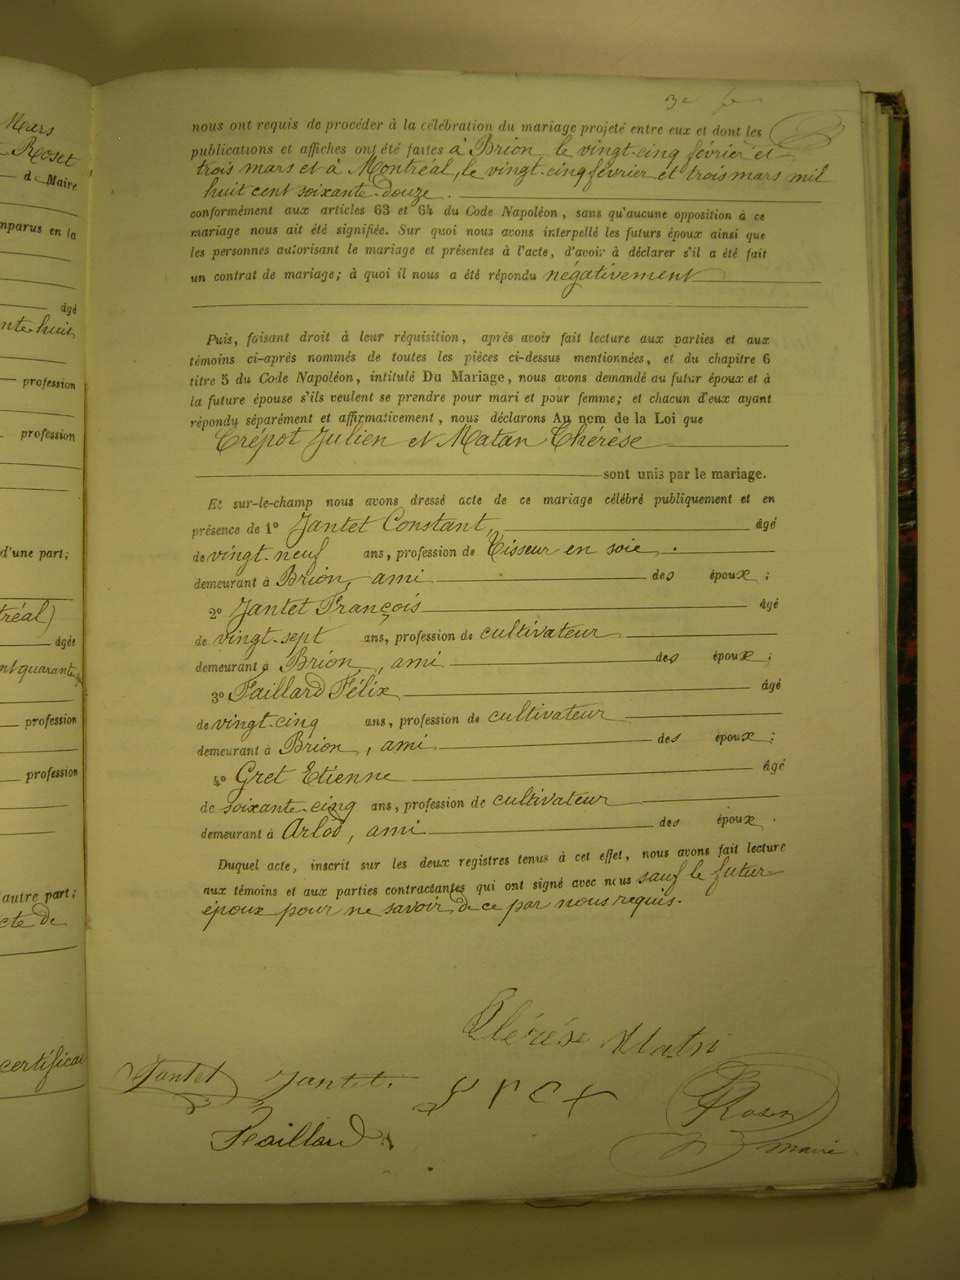 Mars
Roset
de Maire
comparus en la
âgé
nte-huit
profession
profession
d'une part;
tréal)
âgée
nt quarante
profession
profession
autre part;
cte de
certificat
3e
nous ont requis de procéder à la célébration du mariage projeté entre eux et dont les
publications et affiches ont été faites à Brion le vingt-cinq février et
trois mars et à Montréal, le vingt-cinq février et trois mars mil
huit cent soixante-douze.
conformément aux articles 63 et 64 du Code Napoléon, sans qu'aucune opposition à ce
mariage nous ait été signifiée. Sur quoi nous avons interpellé les futurs époux ainsi que
les personnes autorisant le mariage et présentes à l'acte, d'avoir à déclarer s'il a été fait
un contrat de mariage; à quoi il nous a été répondu négativement
Puis, faisant droit à leur réquisition, après avoir fait lecture aux parties et aux
témoins ci-après nommés de toutes les pièces ci-dessus mentionnées, et du chapitre 6
titre 5 du Code Napoléon, intitulé Du Mariage, nous avons demandé au futur époux et à
la future épouse s'ils veulent se prendre pour mari et pour femme; et chacun d'eux ayant
répondu séparément et affirmativement, nous déclarons Au nom de la Loi que
Crépot Julien et Matan Thérèse
sont unis par le mariage.
Et sur-le-champ nous avons dressé acte de ce mariage célébré publiquement et en
présence de 1° Jantet Constant, âgé
de vingt-neuf ans, profession de Tisseur en soie.
demeurant à Brion, ami des époux;
2° Jantet François âgé
de vingt-sept ans, profession de cultivateur
demeurant à Brion, ami des époux;
3° Faillard Félix âgé
de vingt-cinq ans, profession de cultivateur
demeurant à Brion, ami des époux;
4° Gret Etienne âgé
de soixante-cinq ans, profession de cultivateur
demeurant à Arlod, ami des époux.
Duquel acte, inscrit sur les deux registres tenus à cet effet, nous avons fait lecture
aux témoins et aux parties contractantes qui ont signé avec nous sauf le futur
époux pour ne savoir, de ce par nous requis.
Thérèse
Jantet Jantet
Faillard
maire